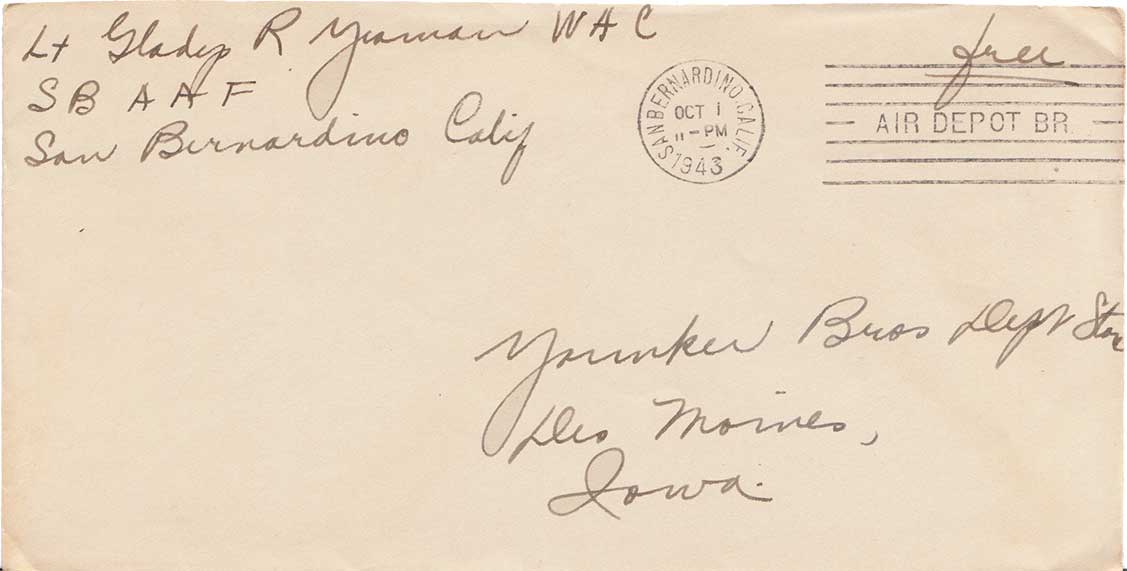 Lt Gladys R Yeoman WAC
SB AAF
San Bernardino Calif
free
SAN BERNARDINO, CALIF.
OCT 1
11-PM
1943
AIR DEPOT BR.
Younker Bros Dept Store
Des Moines,
Iowa.